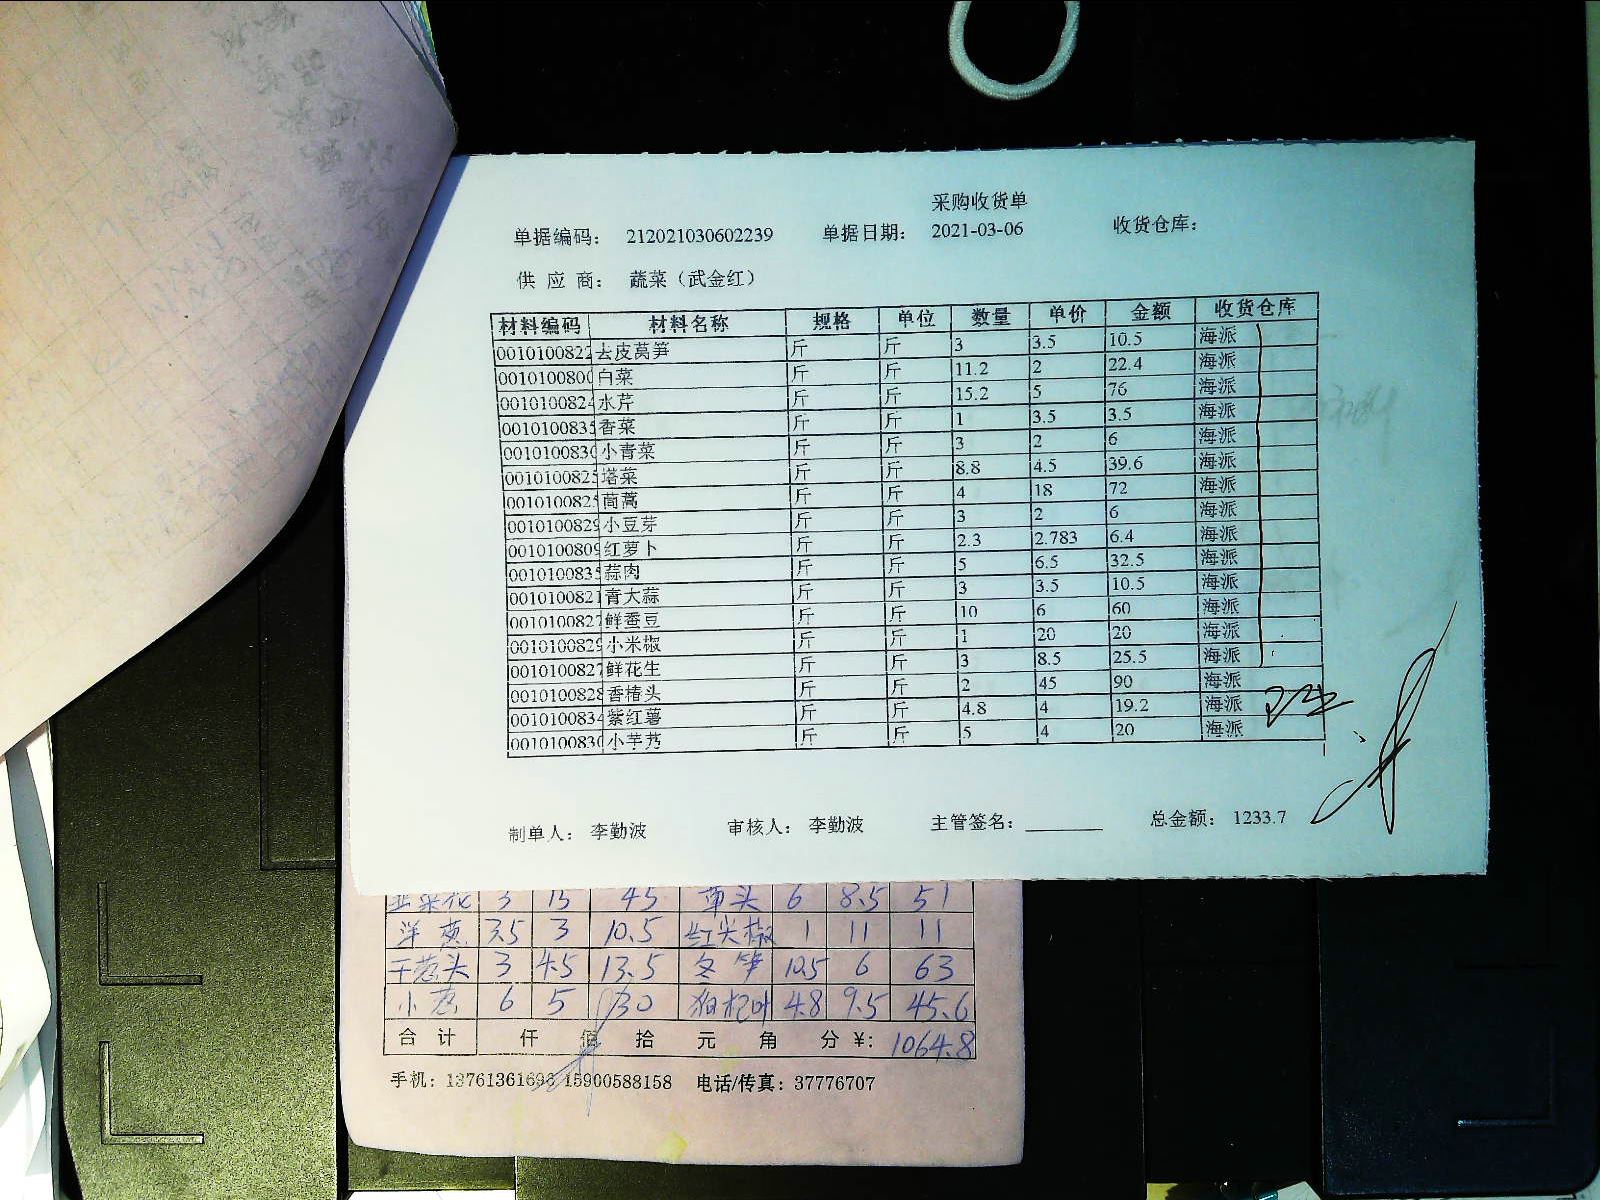 采购收货单
单据编码： 212021030602239 单据日期： 2021-03-06 收货仓库：
供 应 商： 蔬菜（武金红）
材料编码 材料名称 规格 单位 数量 单价 金额 收货仓库
0010100822 去皮莴笋 斤 斤 3 3.5 10.5 海派
001010080 白菜 斤 斤 11.2 2 22.4 海派
0010100824 水芹 斤 斤 15.2 5 76 海派
0010100835 香菜 斤 斤 1 3.5 3.5 海派
001010083 小青菜 斤 斤 3 2 6 海派
0010100825 塔菜 斤 斤 8.8 4.5 39.6 海派
0010100825 茼蒿 斤 斤 4 18 72 海派
0010100829 小豆芽 斤 斤 3 2 6 海派
0010100809 红萝卜 斤 斤 2.3 2.783 6.4 海派
0010100835 蒜肉 斤 斤 5 6.5 32.5 海派
0010100821 青大蒜 斤 斤 3 3.5 10.5 海派
0010100827 鲜蚕豆 斤 斤 10 6 60 海派
0010100829 小米椒 斤 斤 1 20 20 海派
0010100827 鲜花生 斤 斤 3 8.5 25.5 海派
0010100828 香椿头 斤 斤 2 45 90 海派
0010100834 紫红薯 斤 斤 4.8 4 19.2 海派
001010083 小芋艿 斤 斤 5 4 20 海派
制单人： 李勤波 审核人： 李勤波 主管签名： 总金额： 1233.7
韭菜花 3 15 45 草头 6 8.5 51
洋葱 3.5 3 10.5 红尖椒 1 11 11
干葱头 3 4.5 13.5 冬笋 10.5 6 63
小葱 6 5 30 枸杞叶 4.8 9.5 45.6
合 计 仟 佰 拾 元 角 分 ¥: 1064.8
手机：13761361696 15900588158 电话/传真：37776707